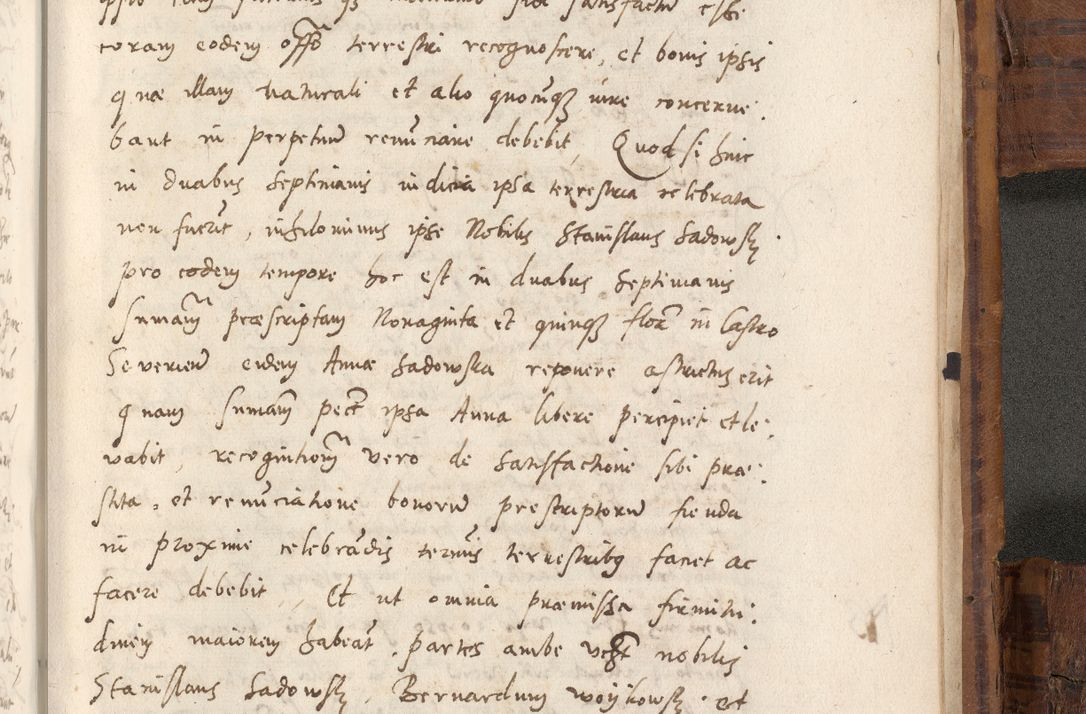 coram eodem offō terrestri recognoscere, et bonis ipsis
quæ illam naturali et alio quocūqȝ iure concerne:
bant in perpetuū renūciare debebit, Quod si huic
in duabus septimanis indicia ipsa terrestria celebrata
non fuerīt, nihilominus ipse Nobilis Stanislaus Sadowsȝ.
pro eodem tempore hoc est in duabus septimanis
sumām præscriptam Nonaginta et quinqȝ flor in Castro
Severien̄ eidem Annæ Sadowska reponere astrictus erit
quam sumām pect ipsa Anna libere percipiet et le:
vabit, recognitionē vero de satisfactione sibi præ:
stita, et renūciatione bonorū prescriptorū fienda
in proxime celebrādis terminis terrestribȝ faciet ac
facere debebit, Et ut omnia præmissa firmitu:
dinem maiorem habeāt, partes ambe vcȝt nobilis
Stanislaus Sadowsȝ, Bernardum Woyikowsȝ. et